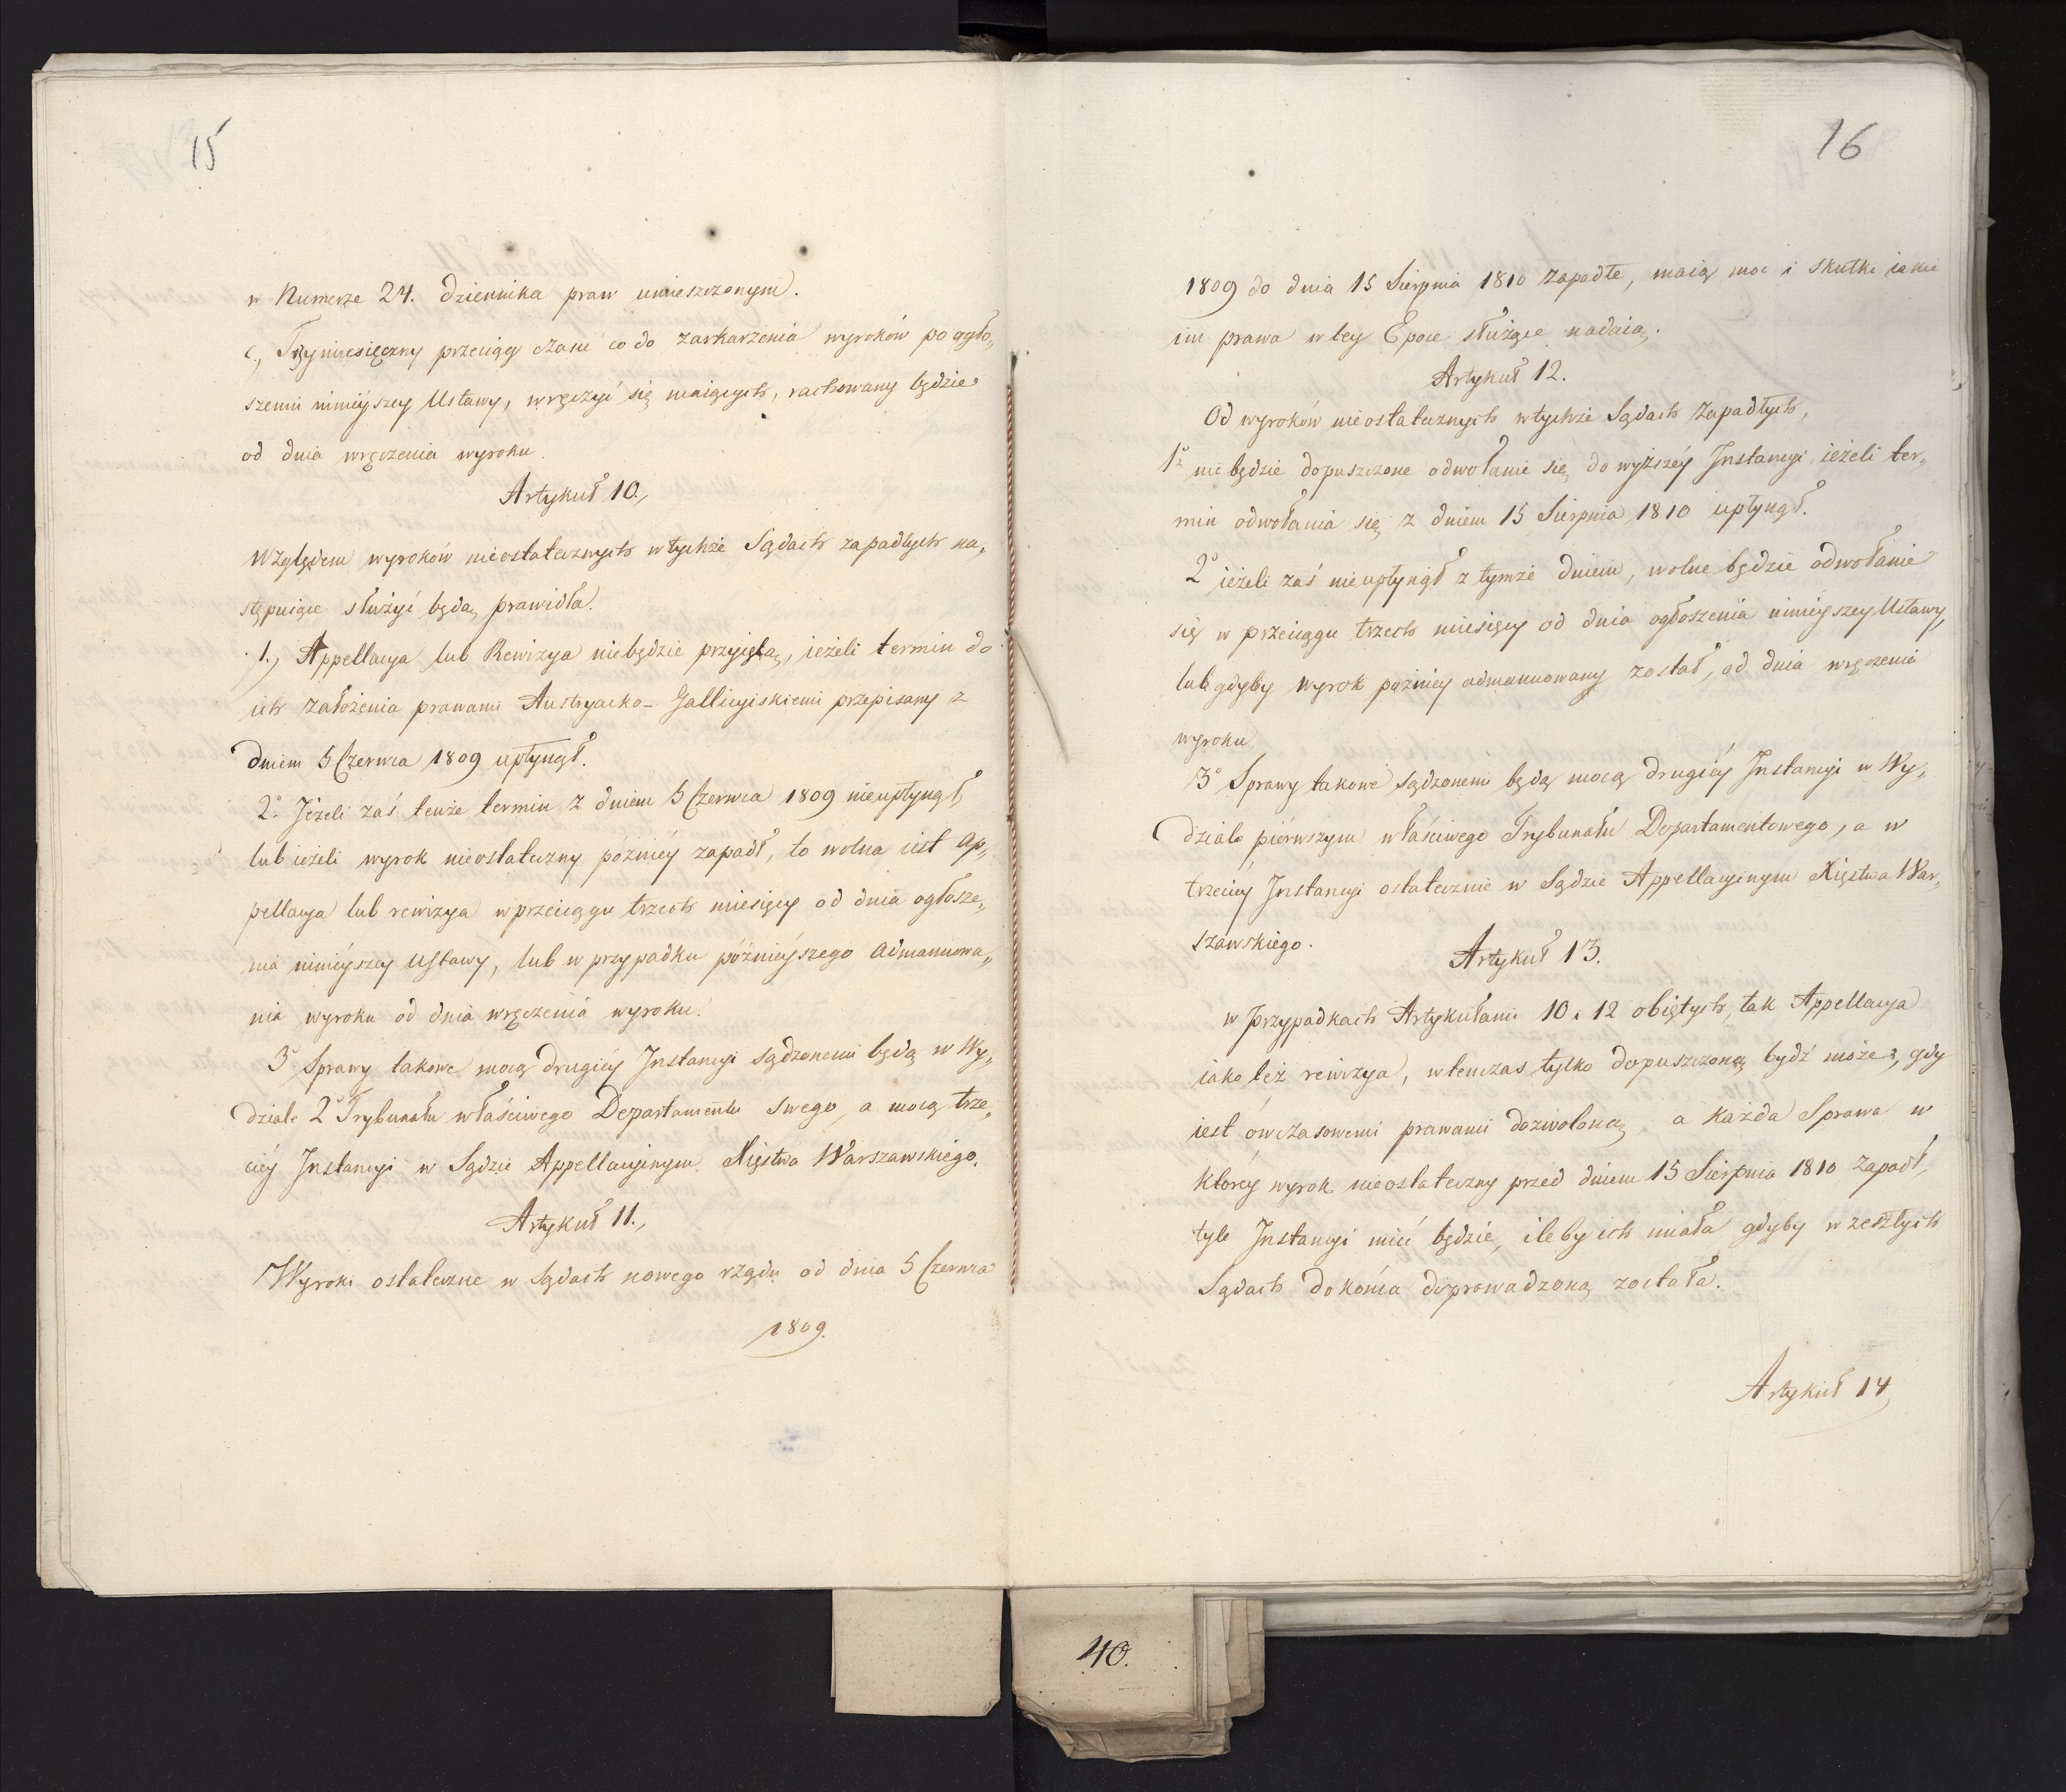 15
w Numerze 24. dziennika praw umieszczonym.
c., Trzymiesięczny przeciąg czasu co do zaskarżenia wyroków po ogło„
szeniu ninieyszey Ustawy, wręczyć się maiących, rachowany będzie
od dnia wręczenia wyroku.
Artykuł 10.,
Względem wyroków nieostatecznych w tychże Sądach zapadłych na„
stępuiące służyć będą prawidła.
1., Appellacya lub Rewizya niebędzie przyiętą, ieżeli termin do
ich założenia prawami Austryacko-Gallicyiskiemi przepisany z
dniem 5 Czerwca 1809 upłynął.
2° Jeżeli zaś tenże termin z dniem 5 Czerwca 1809 nieupłynął,
lub ieżeli wyrok nieostateczny późniéy zapadł, to wolna iest Ap„
pellacya lub rewizya w przeciągu trzech miesięcy od dnia ogłosze„
nia ninieyszey Ustawy, lub w przypadku późnieyszego admanuowa„
nia wyroku od dnia wręczenia wyroku.
3° Sprawy takowe mocą drugiéy Instancyi sądzonemi będą w Wy„
dziale 2° Trybunału właściwego Departamentu swego, a mocą trze„
ciéy Instancyi w Sądzie Appellacyinym Xięstwa Warszawskiego.
Artykuł 11.,
Wyroki ostateczne w Sądach nowego rządu od dnia 5 Czerwca
1809.
16
1809 do dnia 15 Sierpnia 1810 zapadłe, maią moc i skutki iakie
im prawa w tey Epoce służące nadaią.
Artykuł 12.
Od wyroków nieostatecznych w tychże Sądach zapadłych,
1° nie będzie dopuszczone odwołanie się do wyższéy Instancyi, ieżeli ter„
min odwołania się z dniem 15 Sierpnia 1810 upłynął.
2° ieżeli zaś nieupłynął z tymże dniem, wolne będzie odwołanie
się w przeciągu trzech miesięcy od dnia ogłoszenia ninieyszey Ustawy,
lub gdyby wyrok pózniey admanuowany został, od dnia wręczenia
wyroku
3° Sprawy takowe sądzonemi będą mocą drugiéy Instancyi w Wy„
dziale piérwszym właściwego Trybunału Departamentowego, a w
trzeciéy Instancyi ostatecznie w Sądzie Appellacyinym Xięstwa War„
szawskiego.
Artykuł 13.
w przypadkach Artykułami 10 i 12 obiętych, tak Appellacya
iako też rewizya, wtenczas tylko dopuszczoną bydź może, gdy
iest ówczasowemi prawami dozwoloną, a każda Sprawa w
któréy wyrok nieostateczny przed dniem 15 Sierpnia 1810 zapadł,
tyle Instancyi mieć będzie, ileby ich miała gdyby w zeszłych
Sądach do końca doprowadzoną została.
Artykuł 14,
40.